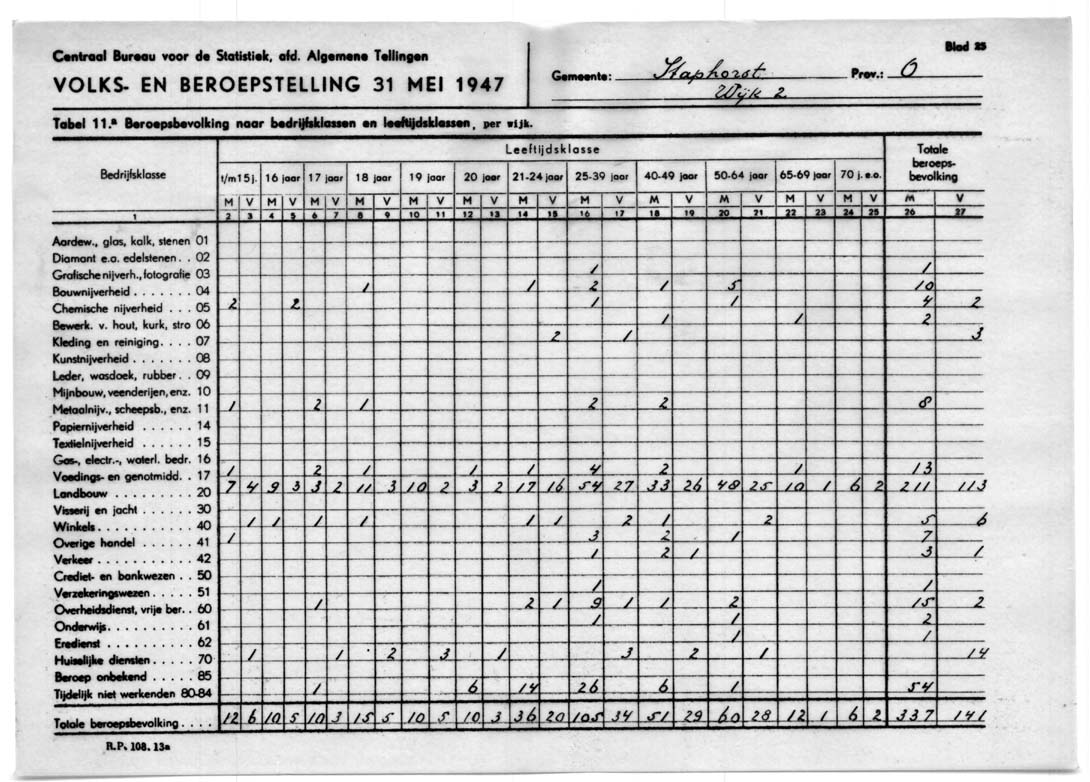 Centraal Bureau voor de Statistiek, afd. Algemene Tellingen
VOLKS- EN BEROEPSTELLING 31 MEI 1947
Gemeente: Staphorst Prov.: O
Wijk 2
Blad 25
Tabel 11.a Beroepsbevolking naar bedrijfsklassen en leeftijdsklassen, per wijk.
Bedrijfsklasse Leeftijdsklasse Totale beroeps-bevolking
t/m 15 j. 16 jaar 17 jaar 18 jaar 19 jaar 20 jaar 21-24 jaar 25-39 jaar 40-49 jaar 50-64 jaar 65-69 jaar 70 j. e.o.
M V M V M V M V M V M V M V M V M V M V M V M V M V
1 2 3 4 5 6 7 8 9 10 11 12 13 14 15 16 17 18 19 20 21 22 23 24 25 26 27
Aardew., glas, kalk, stenen 01
Diamant e.a. edelstenen . . 02
Grafische nijverh., fotografie 03 1 1
Bouwnijverheid . . . . . . . 04 1 1 2 1 5 10
Chemische nijverheid . . . 05 2 2 1 1 4 2
Bewerk. v. hout, kurk, stro 06 1 1 2
Kleding en reiniging . . . . 07 2 1 3
Kunstnijverheid . . . . . . 08
Leder, wasdoek, rubber . . 09
Mijnbouw, veenderijen, enz. 10
Metaalnijv., scheepsb., enz. 11 1 2 1 2 2 8
Papiernijverheid . . . . . . 14
Textielnijverheid . . . . . 15
Gas-, electr.-, waterl. bedr. 16
Voedings- en genotmidd. . 17 1 2 1 1 1 4 2 1 13
Landbouw . . . . . . . . . 20 7 4 9 3 3 2 11 3 10 2 3 2 17 16 54 27 33 26 48 25 10 1 6 2 211 113
Visserij en jacht . . . . . 30
Winkels . . . . . . . . . . 40 1 1 1 1 1 1 2 1 2 5 6
Overige handel . . . . . . 41 1 3 2 1 7
Verkeer . . . . . . . . . . 42 1 2 1 3 1
Crediet- en bankwezen . . 50
Verzekeringswezen . . . . . 51 1 1
Overheidsdienst, vrije ber. . 60 1 2 1 9 1 1 2 15 2
Onderwijs . . . . . . . . . 61 1 1 2
Eredienst . . . . . . . . . 62 1 1
Huiselijke diensten . . . . 70 1 1 2 3 1 3 2 1 14
Beroep onbekend . . . . . 85
Tijdelijk niet werkenden 80-84 1 6 14 26 6 1 54
Totale beroepsbevolking . . . 12 6 10 5 10 3 15 5 10 5 10 3 36 20 105 34 51 29 60 28 12 1 6 2 337 141
R.P. 108. 13a